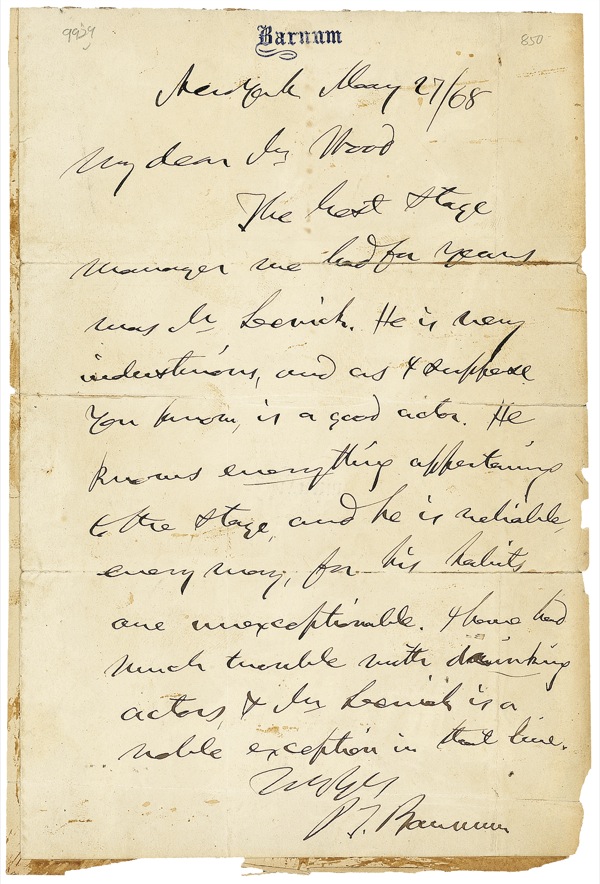 9929
850
Barnum
New York May 27/68
My dear Mr Wood
The best stage
manager we had for years
was Mr Leevick. He is very
industrious, and as I suppose
you know, is a good actor. He
knows everything appertaining
to the stage, and he is reliable
every way, for his habits
are unexceptionable. I have had
much trouble with drinking
actors, & Mr Leevick is a
noble exception in that line.
P T Barnum